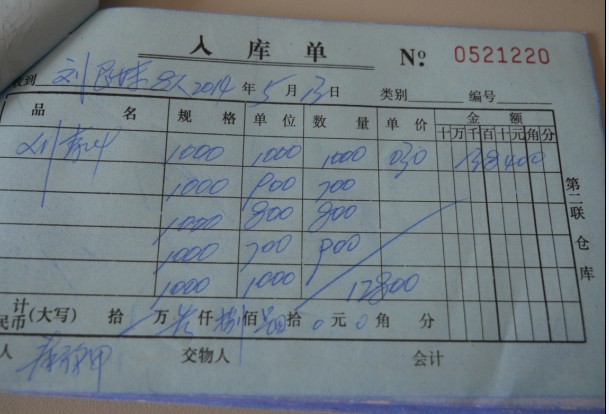 入库单 No: 0521220
到 刘 2014年5月13日 类别 编号
品名 规格 单位 数量 单价 金额
十万千百十元角分
1000 1000 1000 030 138400
1000 900 700
1000 800 800
1000 700 900
1000 1000 12800
计
民币(大写) 拾 万 仟 捌 佰 拾 0 元 0 角 分
人 交物人 会计
第二联 仓库